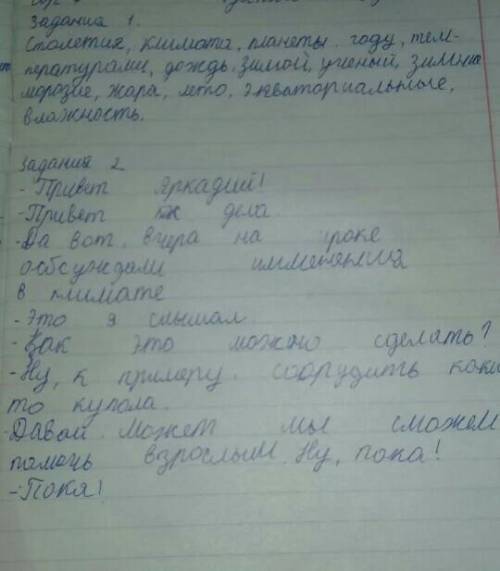 Задания 1.
Столетия, климата, планеты. году, тем-
пературами, дождь, зимой, ученый, зимние
морозные, жара, лето, экваториальные,
влажность.
Задания 2
- Привет Яркадий!
- Привет как дела
- Да вот, вчера на уроке
обсуждали именения
в климате
- Это я слышал
- Как это можно сделать?
- Ну, к примеру. соорудить каки
то купола.
- Давай может мы сможем
помочь взрослым. Ну, пока!
- Пока!